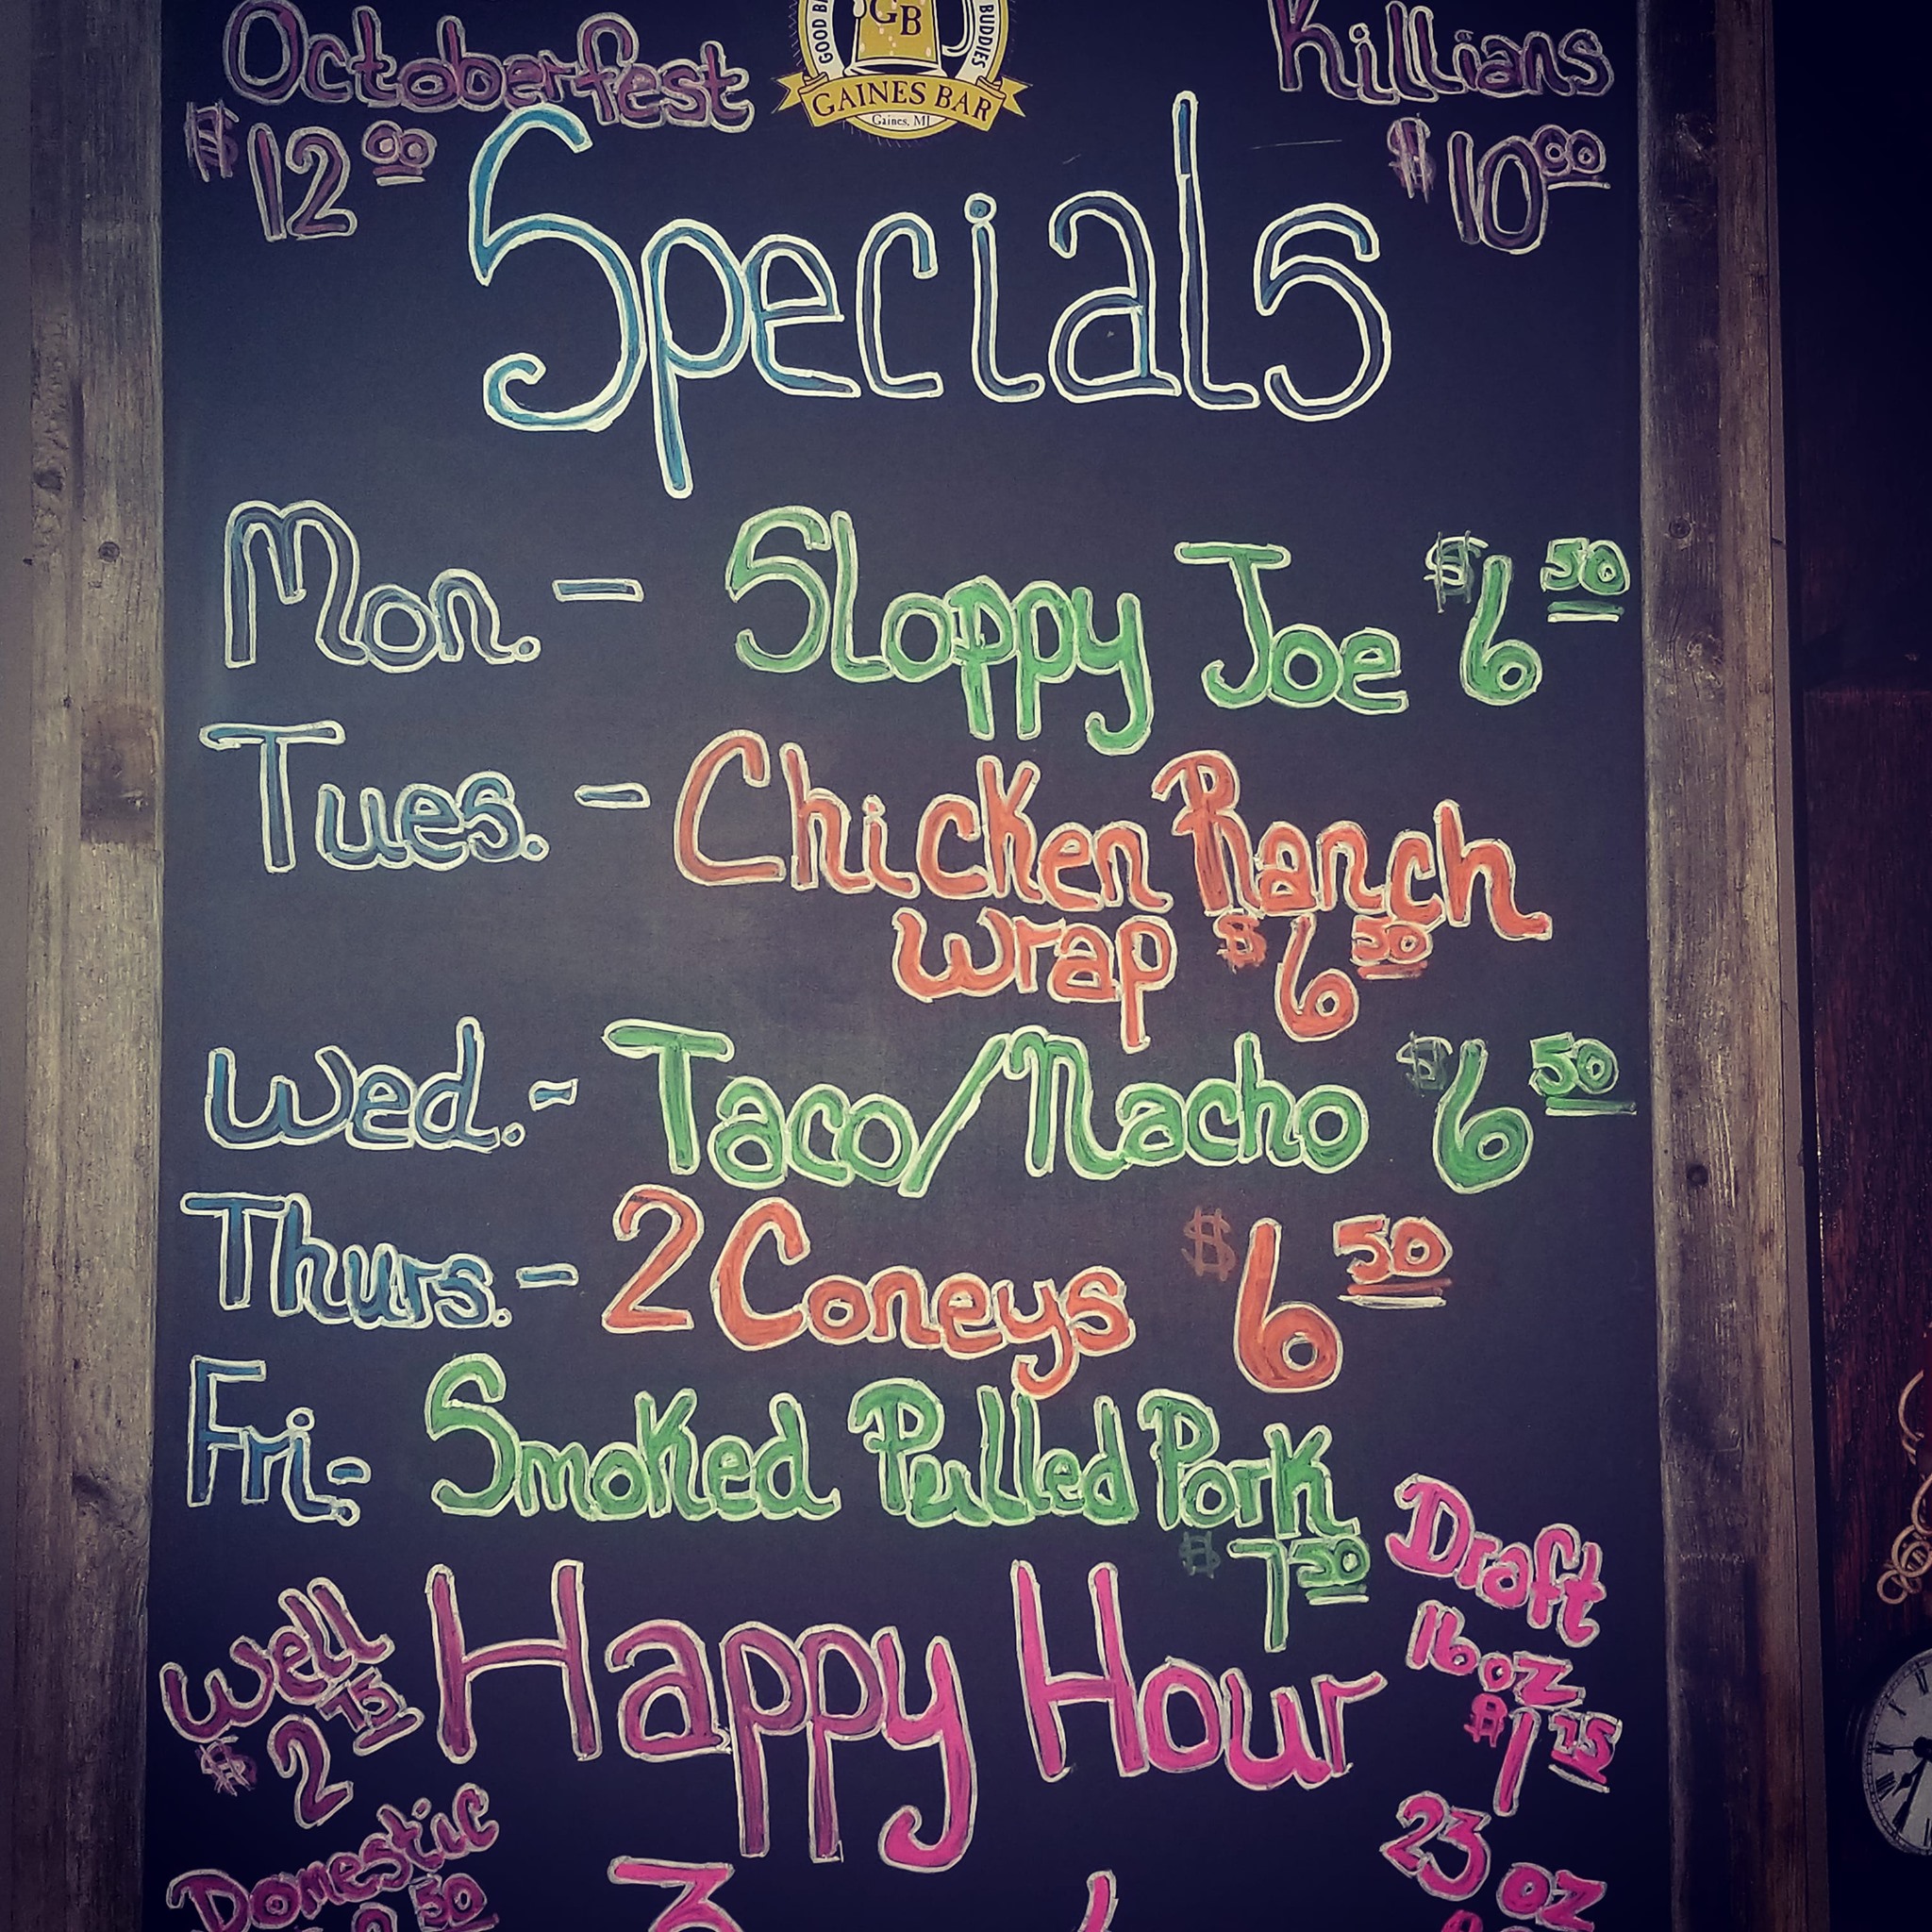 GOOD B
GB
BUDDIES
GAINES BAR
Gaines, MI
Octoberfest
$12.00
Killians
$10.00
Specials
Mon. - Sloppy Joe $6 50
Tues. - Chicken Ranch
Wrap $6 50
Wed. - Taco/Nacho $6 50
Thurs. - 2 Coneys $6 50
Fri. - Smoked Pulled Pork
$7 50
Happy Hour
Well
$2 75
Domestic
50
3
Draft
16 oz
$1 75
23 oz